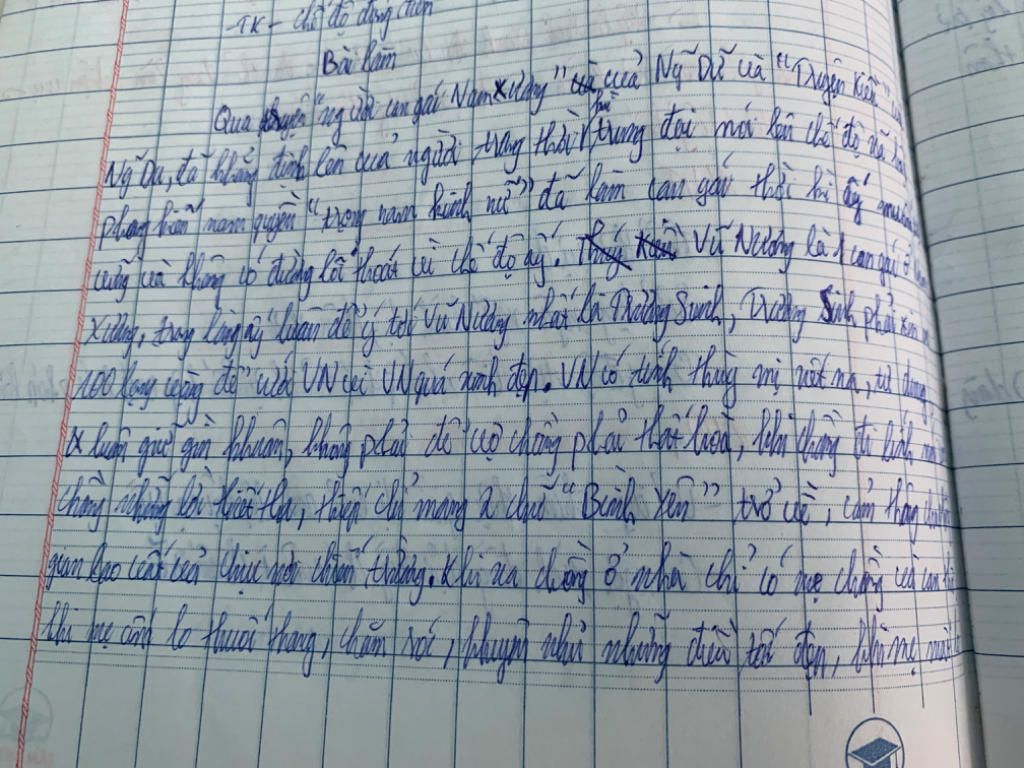 TK - chế độ đương thời
Bài làm
Qua truyện "người con gái Nam Xương" của Ng Dữ và "Truyện Kiều"
Ng Du, đã khẳng định lên của người trong thời kì trung đại nói lên chế độ
phong kiến nam quyền "trọng nam khinh nữ" đã làm con gái thời kì ấy
cùng và không có đường lối thoát vì chế độ ấy. Vũ Nương là 1 con gái ở
Xương, trong làng ấy luôn để ý tới Vũ Nương nhất là Trương Sinh, Trương Sinh phải xin
100 lạng vàng để cưới VN vì VN quá xinh đẹp. VN có tính thùy mị nết na, tư dung
luôn giữ gìn khuôn, không phải để vợ chồng phải thất hoà, khi chồng đi lính
chồng những lời thiết tha, thiếp chỉ mang 2 chữ "Bình Yên" trở về, cảm thông
quan lao vất vả chực nơi chiến trường. Khi xa chồng ở nhà chỉ có mẹ chồng và con
khi mẹ ốm lo thuốc thang, chăm sóc, khuyên nhủ những điều tốt đẹp, khi mẹ mất